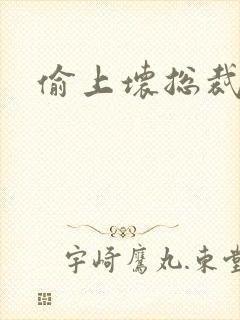 偷上壞總裁
宇崎鷹丸.東堂